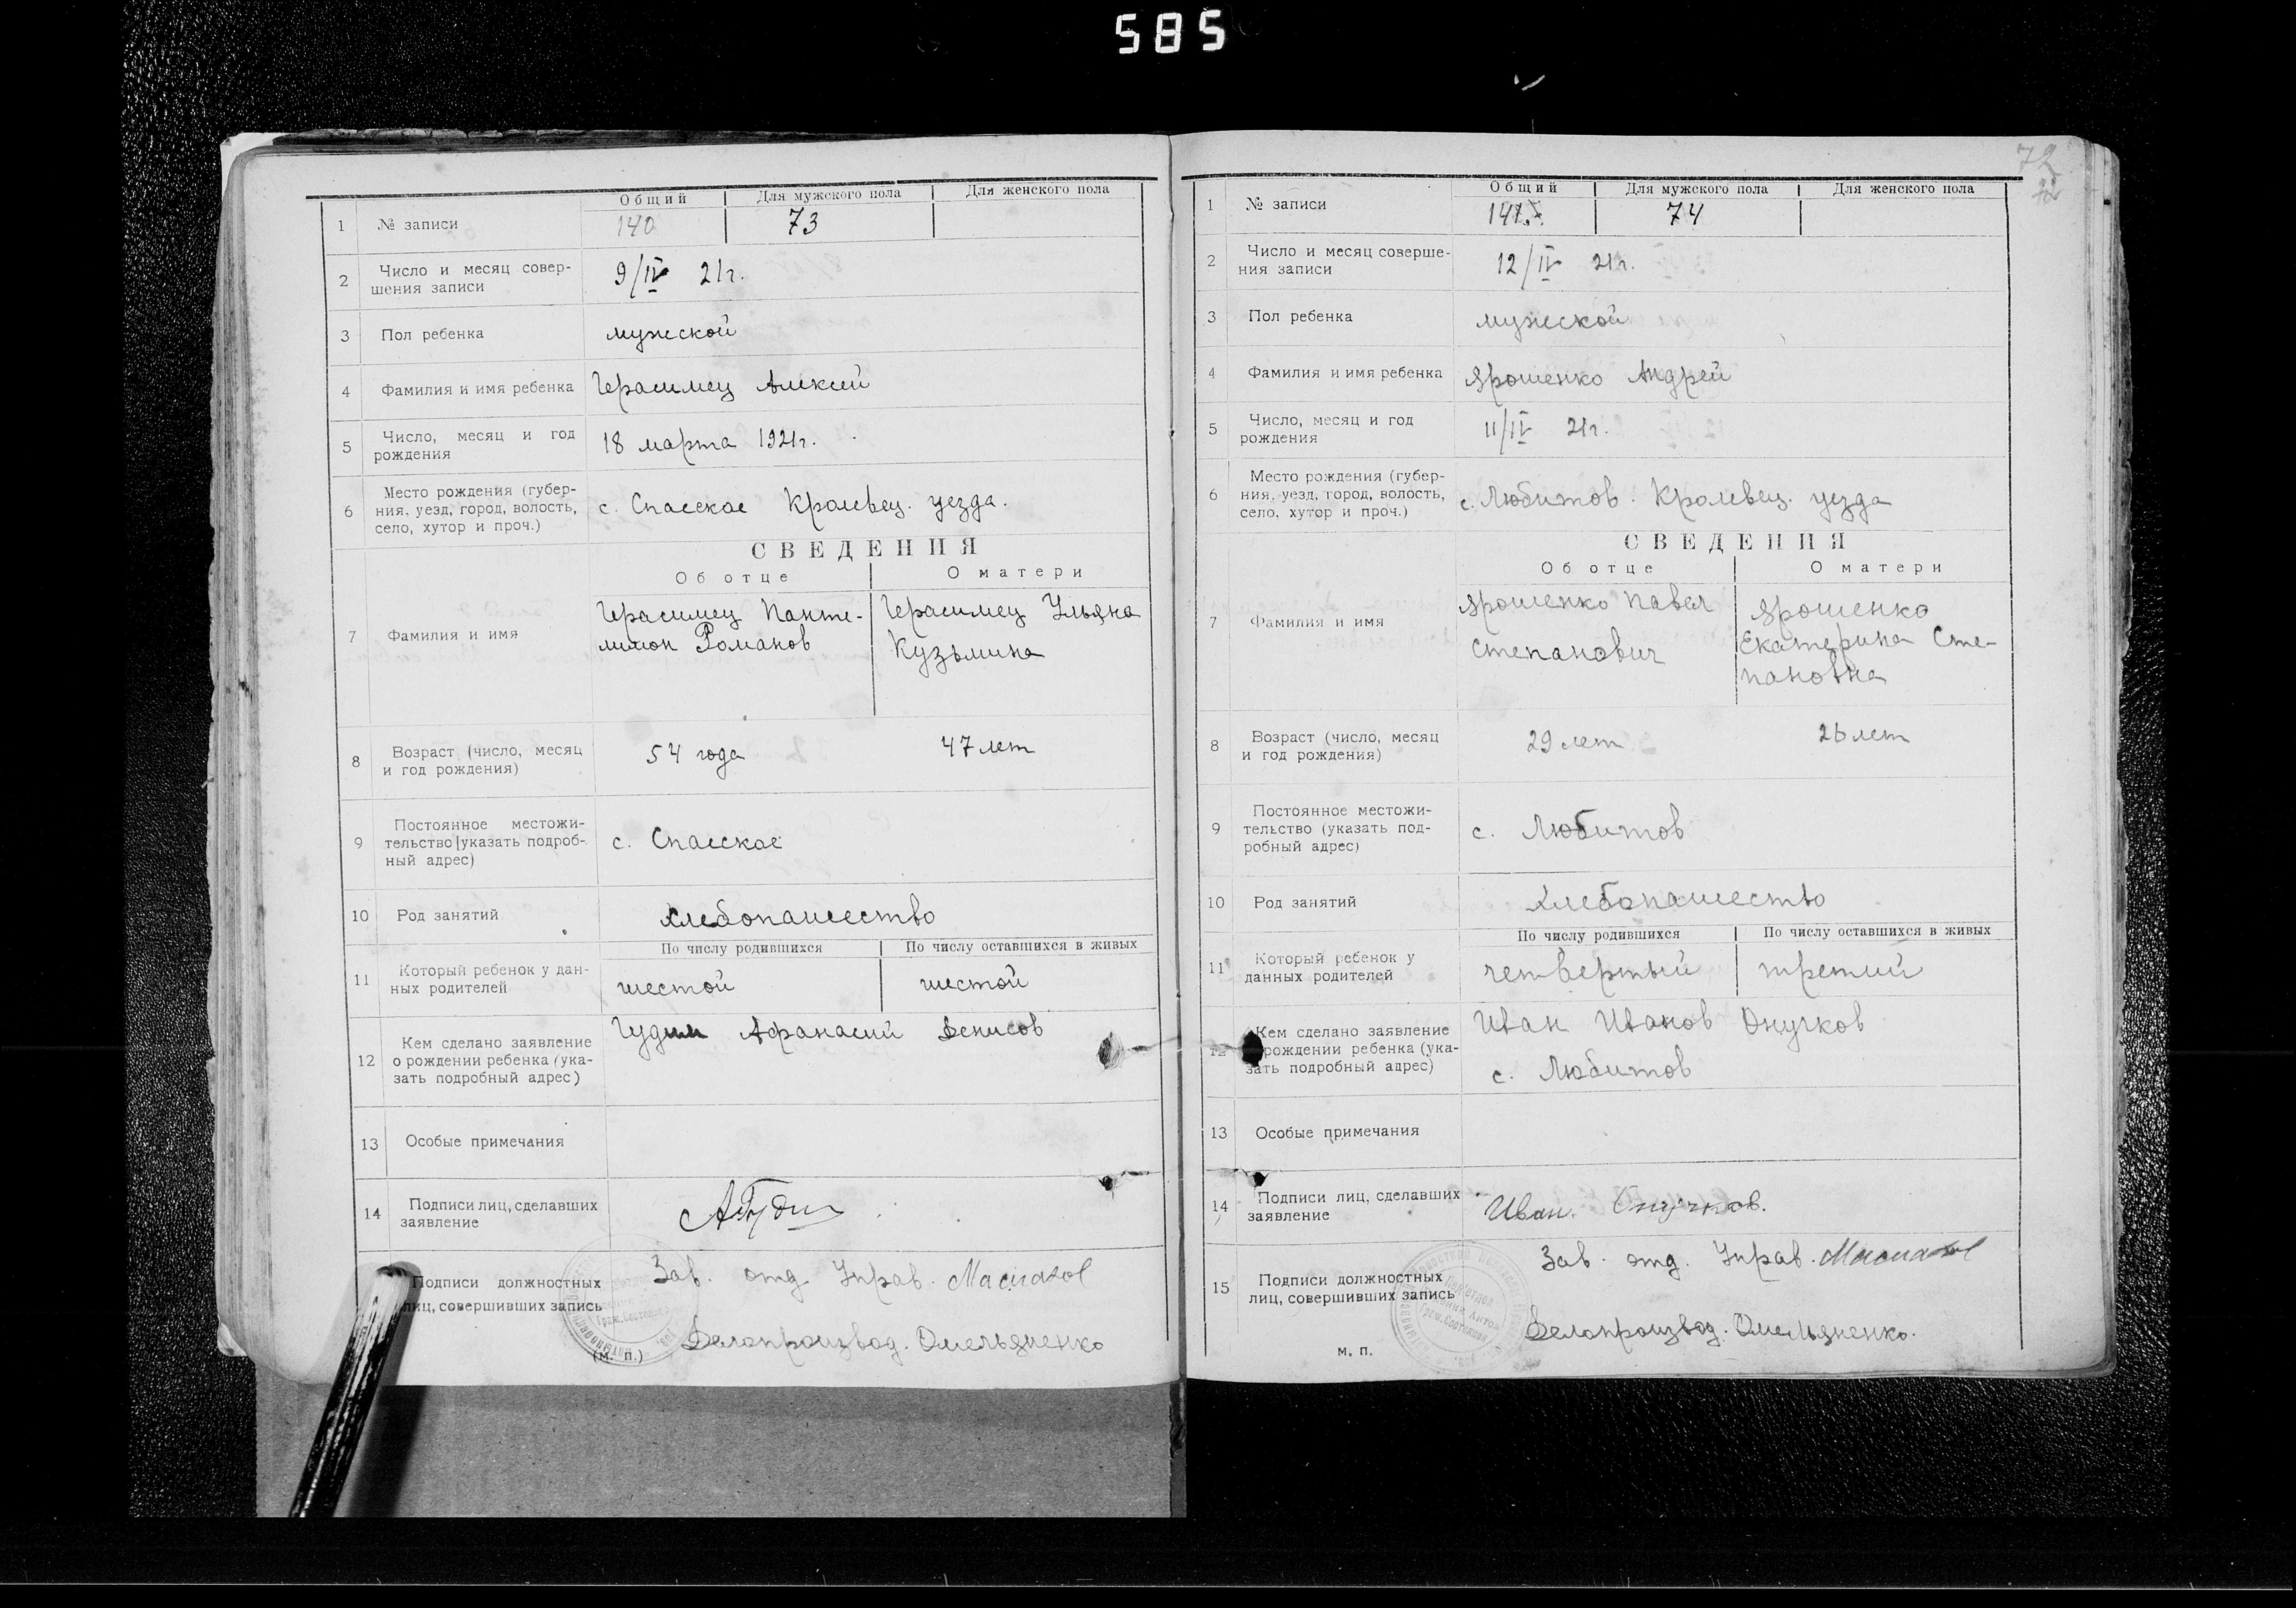 585
Общий Для мужского пола Для женского пола
1 № записи 140 73
2 Число и месяц совер-
шения записи 9/IV 21г.
3 Пол ребенка мужеской
4 Фамилия и имя ребенка Герасимец Алексей
5 Число, месяц и год
рождения 18 марта 1921г.
6 Место рождения (губер-
ния, уезд, город, волость, с. Спасское Кролевец. уезда.
село, хутор и проч.)
СВЕДЕНИЯ
Об отце О матери
7 Фамилия и имя
Герасимец Панте- Герасимец Ульяна
лимон Романов Кузьмина
8 Возраст (число, месяц
и год рождения) 54 года 47 лет
9 Постоянное местожи-
тельство (указать подроб- с. Спасское
ный адрес)
10 Род занятий хлебопашество
По числу родившихся По числу оставшихся в живых
11 Который ребенок у дан-
ных родителей шестой шестой
12 Кем сделано заявление Афанасий Денисов
о рождении ребенка (ука-
зать подробный адрес)
13 Особые примечания
14 Подписи лиц, сделавших
заявление
Подписи должностных Зав. отд. Управ.
лиц, совершивших запись
(м. п.) Делопроизвод. Омельяненко
72
Общий Для мужского пола Для женского пола
1 № записи 141 74
2 Число и месяц соверше-
ния записи 12/IV 21г.
3 Пол ребенка мужеской
4 Фамилия и имя ребенка Ярошенко Андрей
5 Число, месяц и год
рождения 11/IV 21г.
6 Место рождения (губер-
ния, уезд, город, волость, с. Любитов. Кролевец. уезда
село, хутор и проч.)
СВЕДЕНИЯ
Об отце О матери
7 Фамилия и имя
Ярошенко Павел Ярошенко
Степанович Екатерина Сте-
пановна
8 Возраст (число, месяц
и год рождения) 29 лет 26 лет
9 Постоянное местожи-
тельство (указать под- с. Любитов
робный адрес)
10 Род занятий хлебопашество
По числу родившихся По числу оставшихся в живых
11 Который ребенок у
данных родителей четвертый третий
12 Кем сделано заявление Иван Иванов Онучков
о рождении ребенка (ука-
зать подробный адрес) с. Любитов
13 Особые примечания
14 Подписи лиц, сделавших
заявление Иван. Онучков.
15 Подписи должностных Зав. отд. Управ.
лиц, совершивших запись
м. п. Делопроизвод. Омельяненко.